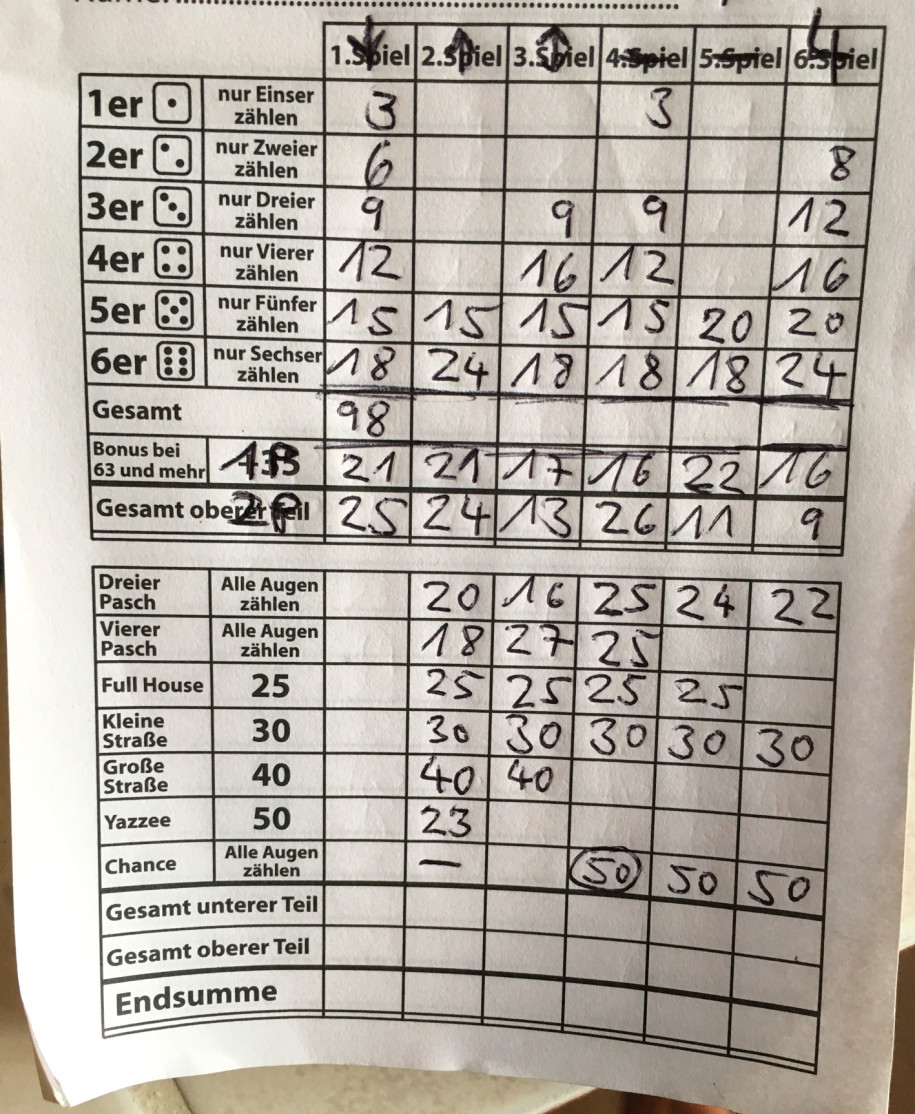 1.Spiel 2.Spiel 3.Spiel 4.Spiel 5.Spiel 6.Spiel
1er nur Einser zählen 3 3
2er nur Zweier zählen 6 8
3er nur Dreier zählen 9 9 9 12
4er nur Vierer zählen 12 16 12 16
5er nur Fünfer zählen 15 15 15 15 20 20
6er nur Sechser zählen 18 24 18 18 18 24
Gesamt 98
Bonus bei 63 und mehr 21 21 17 16 22 16
Gesamt oberer Teil 25 24 13 26 11 9
Dreier Pasch Alle Augen zählen 20 16 25 24 22
Vierer Pasch Alle Augen zählen 18 27 25
Full House 25 25 25 25 25
Kleine Straße 30 30 30 30 30 30
Große Straße 40 40 40
Yazzee 50 23
Chance Alle Augen zählen — 50 50 50
Gesamt unterer Teil
Gesamt oberer Teil
Endsumme